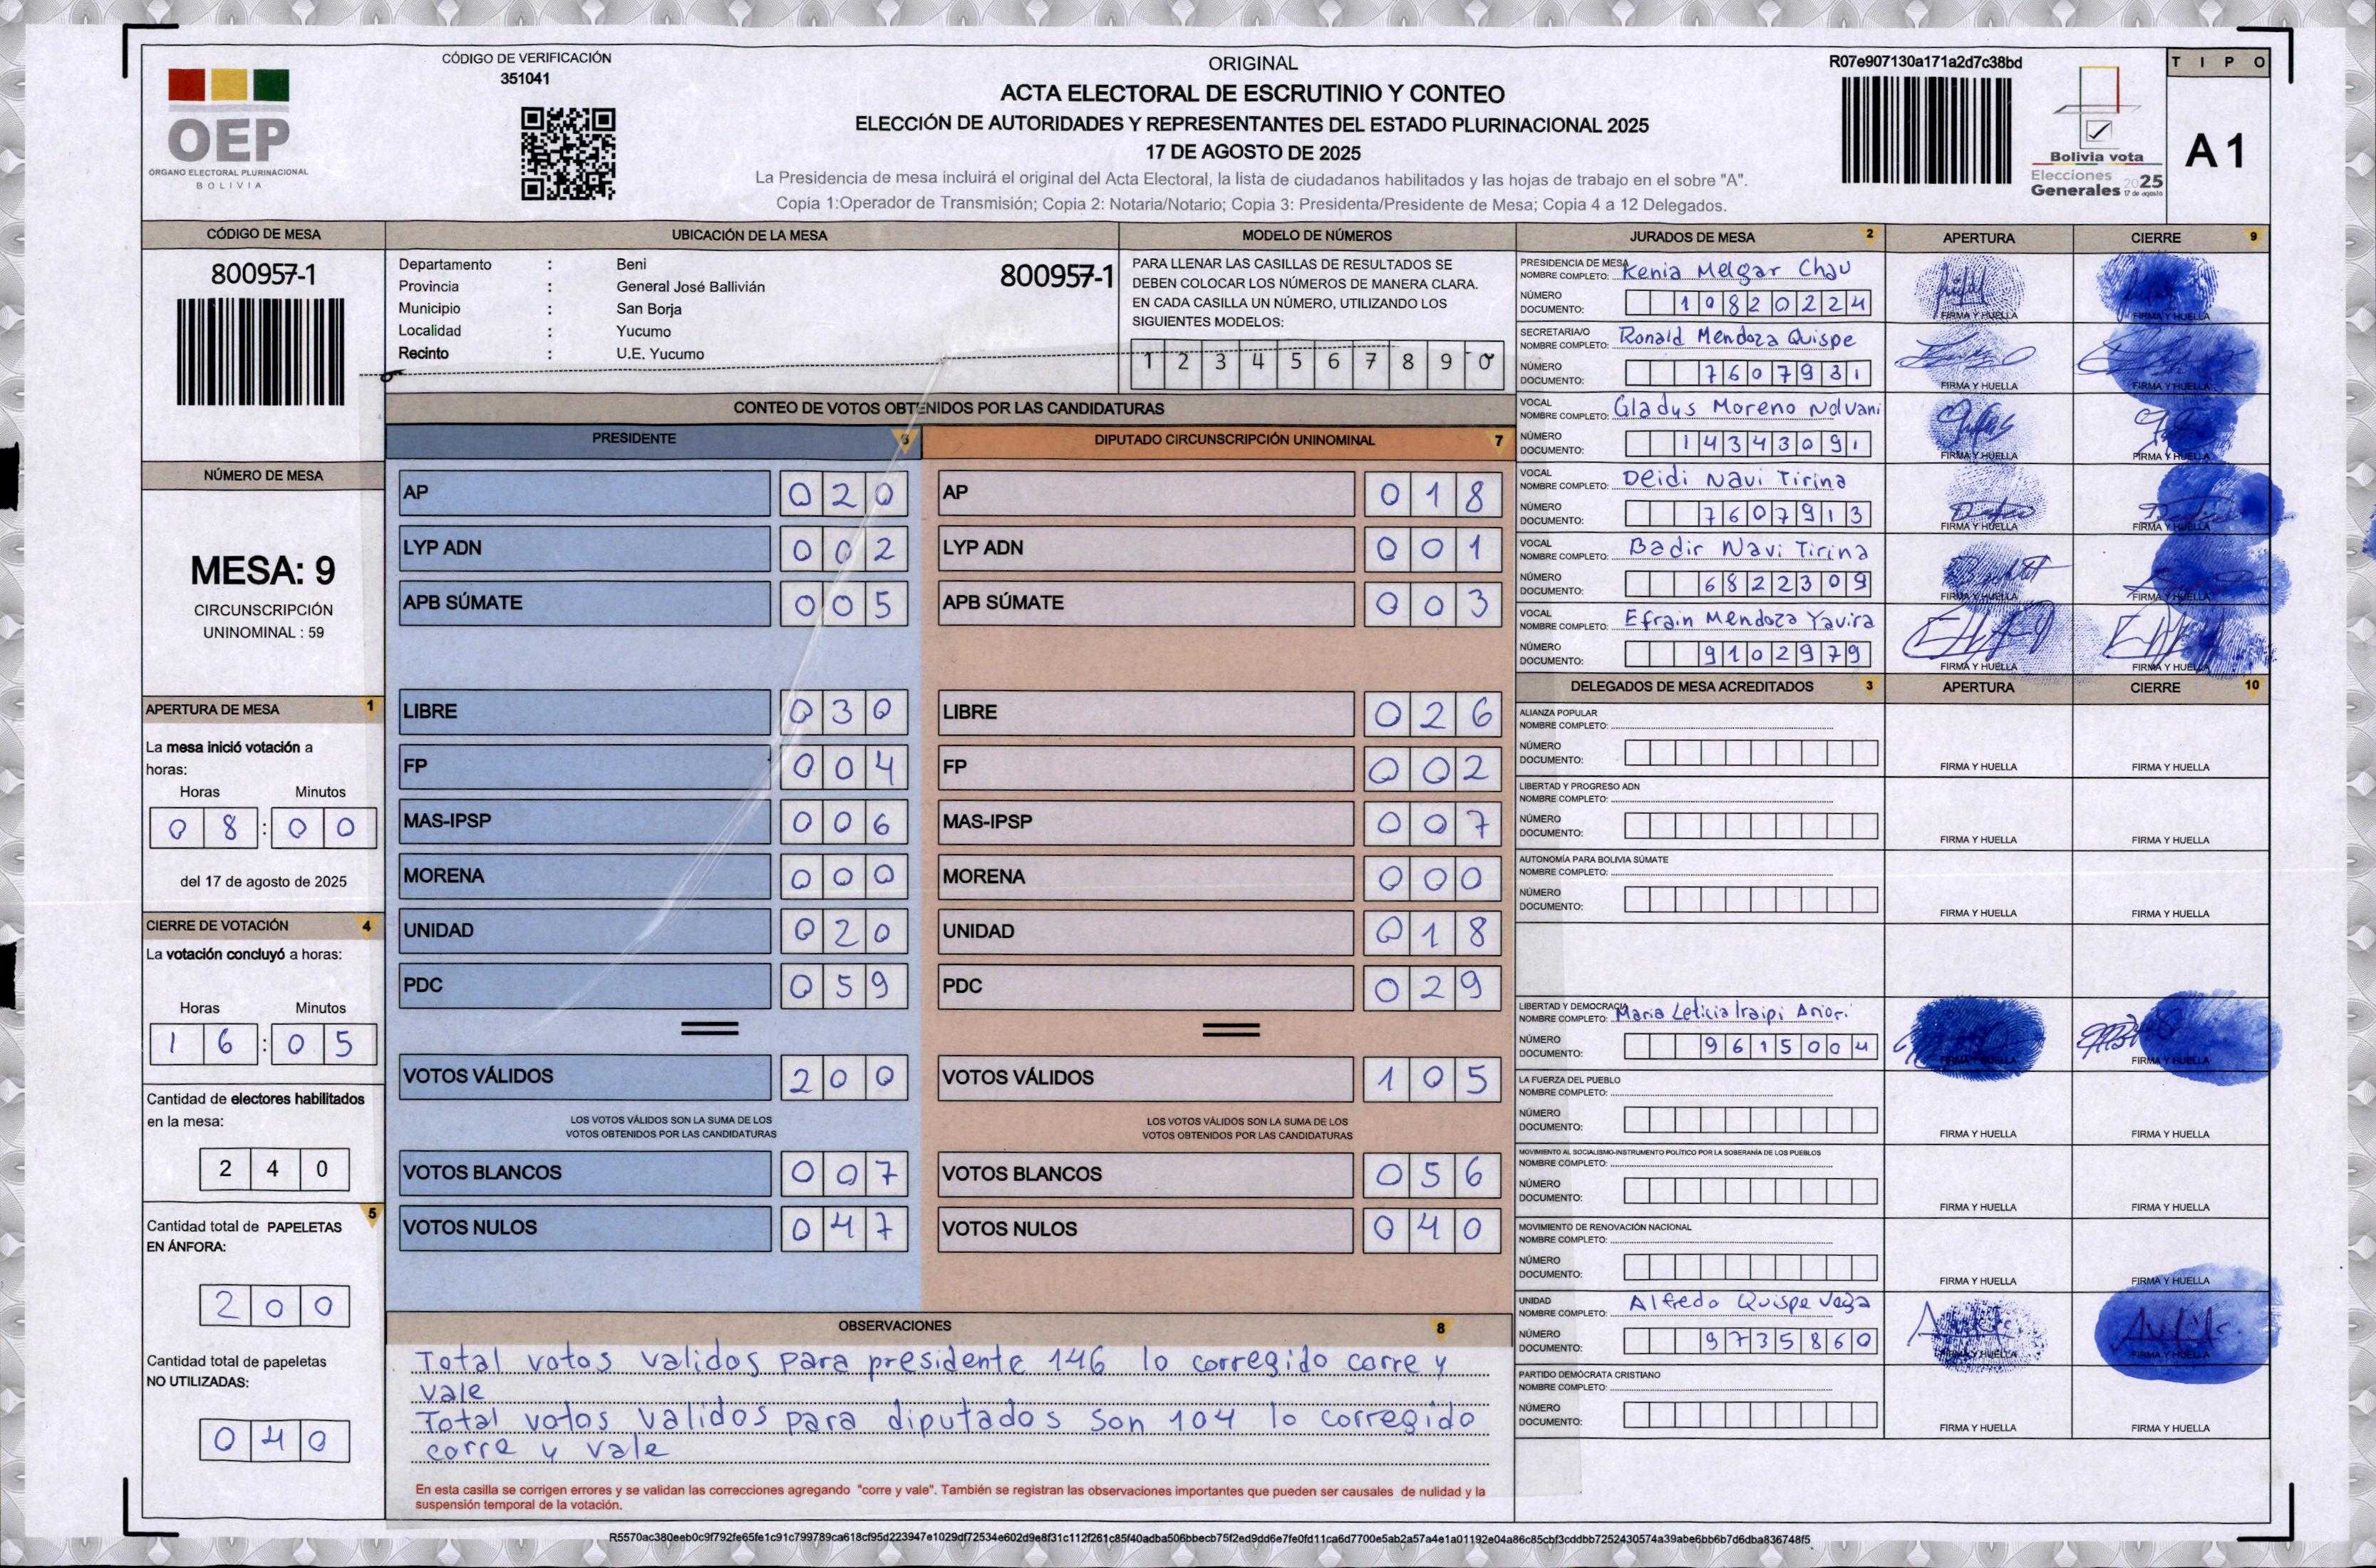 CÓDIGO DE VERIFICACIÓN
351041
OEP
ÓRGANO ELECTORAL PLURINACIONAL
BOLIVIA
ORIGINAL
ACTA ELECTORAL DE ESCRUTINIO Y CONTEO
ELECCIÓN DE AUTORIDADES Y REPRESENTANTES DEL ESTADO PLURINACIONAL 2025
17 DE AGOSTO DE 2025
La Presidencia de mesa incluirá el original del Acta Electoral, la lista de ciudadanos habilitados y las hojas de trabajo en el sobre "A".
Copia 1:Operador de Transmisión; Copia 2: Notaria/Notario; Copia 3: Presidenta/Presidente de Mesa; Copia 4 a 12 Delegados.
R07e907130a171a2d7c38bd
Bolivia vota
Elecciones
Generales 2025
17 de agosto
TIPO
A 1
CÓDIGO DE MESA
800957-1
UBICACIÓN DE LA MESA
Departamento : Beni
Provincia : General José Ballivián
Municipio : San Borja
Localidad : Yucumo
Recinto : U.E. Yucumo
800957-1
MODELO DE NÚMEROS
PARA LLENAR LAS CASILLAS DE RESULTADOS SE
DEBEN COLOCAR LOS NÚMEROS DE MANERA CLARA.
EN CADA CASILLA UN NÚMERO, UTILIZANDO LOS
SIGUIENTES MODELOS:
1 2 3 4 5 6 7 8 9 0
NÚMERO DE MESA
MESA: 9
CIRCUNSCRIPCIÓN
UNINOMINAL : 59
APERTURA DE MESA 1
La mesa inició votación a
horas:
Horas Minutos
0 8 : 0 0
del 17 de agosto de 2025
CIERRE DE VOTACIÓN 4
La votación concluyó a horas:
Horas Minutos
1 6 : 0 5
Cantidad de electores habilitados
en la mesa:
2 4 0
5
Cantidad total de PAPELETAS
EN ÁNFORA:
2 0 0
Cantidad total de papeletas
NO UTILIZADAS:
0 4 0
CONTEO DE VOTOS OBTENIDOS POR LAS CANDIDATURAS
PRESIDENTE 6
AP 0 2 0
LYP ADN 0 0 2
APB SÚMATE 0 0 5
LIBRE 0 3 0
FP 0 0 4
MAS-IPSP 0 0 6
MORENA 0 0 0
UNIDAD 0 2 0
PDC 0 5 9
VOTOS VÁLIDOS 2 0 0
LOS VOTOS VÁLIDOS SON LA SUMA DE LOS
VOTOS OBTENIDOS POR LAS CANDIDATURAS
VOTOS BLANCOS 0 0 7
VOTOS NULOS 0 4 7
DIPUTADO CIRCUNSCRIPCIÓN UNINOMINAL 7
AP 0 1 8
LYP ADN 0 0 1
APB SÚMATE 0 0 3
LIBRE 0 2 6
FP 0 0 2
MAS-IPSP 0 0 7
MORENA 0 0 0
UNIDAD 0 1 8
PDC 0 2 9
VOTOS VÁLIDOS 1 0 5
LOS VOTOS VÁLIDOS SON LA SUMA DE LOS
VOTOS OBTENIDOS POR LAS CANDIDATURAS
VOTOS BLANCOS 0 5 6
VOTOS NULOS 0 4 0
OBSERVACIONES 8
Total votos validos para presidente 146 lo corregido corre y
vale
Total votos validos para diputados son 104 lo corregido
corre y vale
En esta casilla se corrigen errores y se validan las correcciones agregando "corre y vale". También se registran las observaciones importantes que pueden ser causales de nulidad y la
suspensión temporal de la votación.
JURADOS DE MESA 2 APERTURA CIERRE 9
PRESIDENCIA DE MESA
NOMBRE COMPLETO: Kenia Melgar Chau
NÚMERO
DOCUMENTO: 10820224
FIRMA Y HUELLA FIRMA Y HUELLA
SECRETARIA/O
NOMBRE COMPLETO: Ronald Mendoza Quispe
NÚMERO
DOCUMENTO: 7607931
FIRMA Y HUELLA FIRMA Y HUELLA
VOCAL
NOMBRE COMPLETO: Gladys Moreno
NÚMERO
DOCUMENTO: 14343091
FIRMA Y HUELLA FIRMA Y HUELLA
VOCAL
NOMBRE COMPLETO: Deidi Navi Tirina
NÚMERO
DOCUMENTO: 7607913
FIRMA Y HUELLA FIRMA Y HUELLA
VOCAL
NOMBRE COMPLETO: Badir Navi Tirina
NÚMERO
DOCUMENTO: 6822309
FIRMA Y HUELLA FIRMA Y HUELLA
VOCAL
NOMBRE COMPLETO: Efrain Mendoza Yavira
NÚMERO
DOCUMENTO: 9102979
FIRMA Y HUELLA FIRMA Y HUELLA
DELEGADOS DE MESA ACREDITADOS 3 APERTURA CIERRE 10
ALIANZA POPULAR
NOMBRE COMPLETO:
NÚMERO
DOCUMENTO:
FIRMA Y HUELLA FIRMA Y HUELLA
LIBERTAD Y PROGRESO ADN
NOMBRE COMPLETO:
NÚMERO
DOCUMENTO:
FIRMA Y HUELLA FIRMA Y HUELLA
AUTONOMÍA PARA BOLIVIA SÚMATE
NOMBRE COMPLETO:
NÚMERO
DOCUMENTO:
FIRMA Y HUELLA FIRMA Y HUELLA
LIBERTAD Y DEMOCRACIA
NOMBRE COMPLETO: Maria Leticia Iraipi
NÚMERO
DOCUMENTO: 9615004
FIRMA Y HUELLA FIRMA Y HUELLA
LA FUERZA DEL PUEBLO
NOMBRE COMPLETO:
NÚMERO
DOCUMENTO:
FIRMA Y HUELLA FIRMA Y HUELLA
MOVIMIENTO AL SOCIALISMO-INSTRUMENTO POLÍTICO POR LA SOBERANÍA DE LOS PUEBLOS
NOMBRE COMPLETO:
NÚMERO
DOCUMENTO:
FIRMA Y HUELLA FIRMA Y HUELLA
MOVIMIENTO DE RENOVACIÓN NACIONAL
NOMBRE COMPLETO:
NÚMERO
DOCUMENTO:
FIRMA Y HUELLA FIRMA Y HUELLA
UNIDAD
NOMBRE COMPLETO: Alfredo Quispe Vega
NÚMERO
DOCUMENTO: 9735860
FIRMA Y HUELLA FIRMA Y HUELLA
PARTIDO DEMÓCRATA CRISTIANO
NOMBRE COMPLETO:
NÚMERO
DOCUMENTO:
FIRMA Y HUELLA FIRMA Y HUELLA